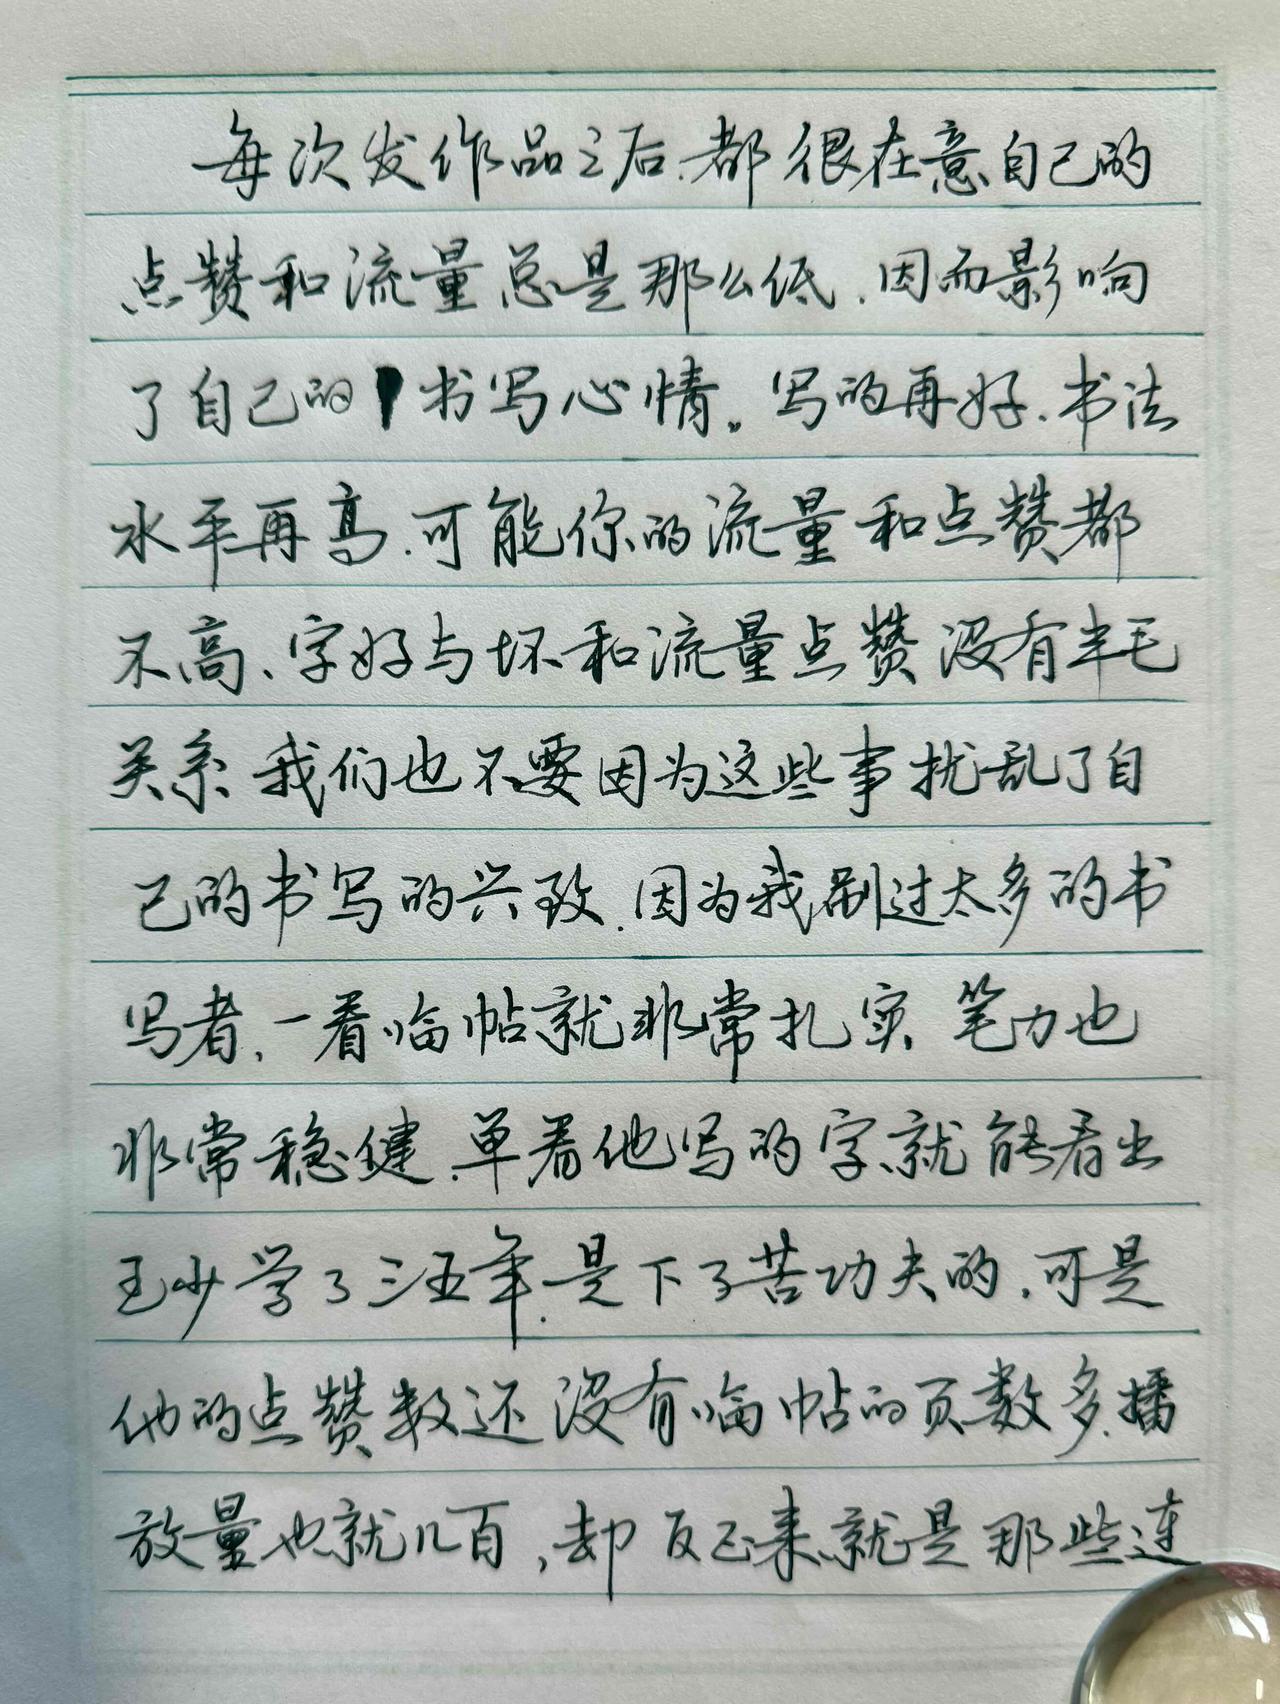 每次发作品之后.都很在意自己的
点赞和流量总是那么低.因而影响
了自己的书写心情。写的再好.书法
水平再高.可能你的流量和点赞都
不高、字好与坏和流量点赞没有半毛
关系.我们也不要因为这些事扰乱了自
己的书写的兴致.因为我刷过太多的书
写者,一看临帖就非常扎实.笔力也
非常稳健.单看他写的字就能看出
至少学了三五年.是下了苦功夫的.可是
他的点赞数还没有临帖的页数多.播
放量也就几百,却反正来就是那些连